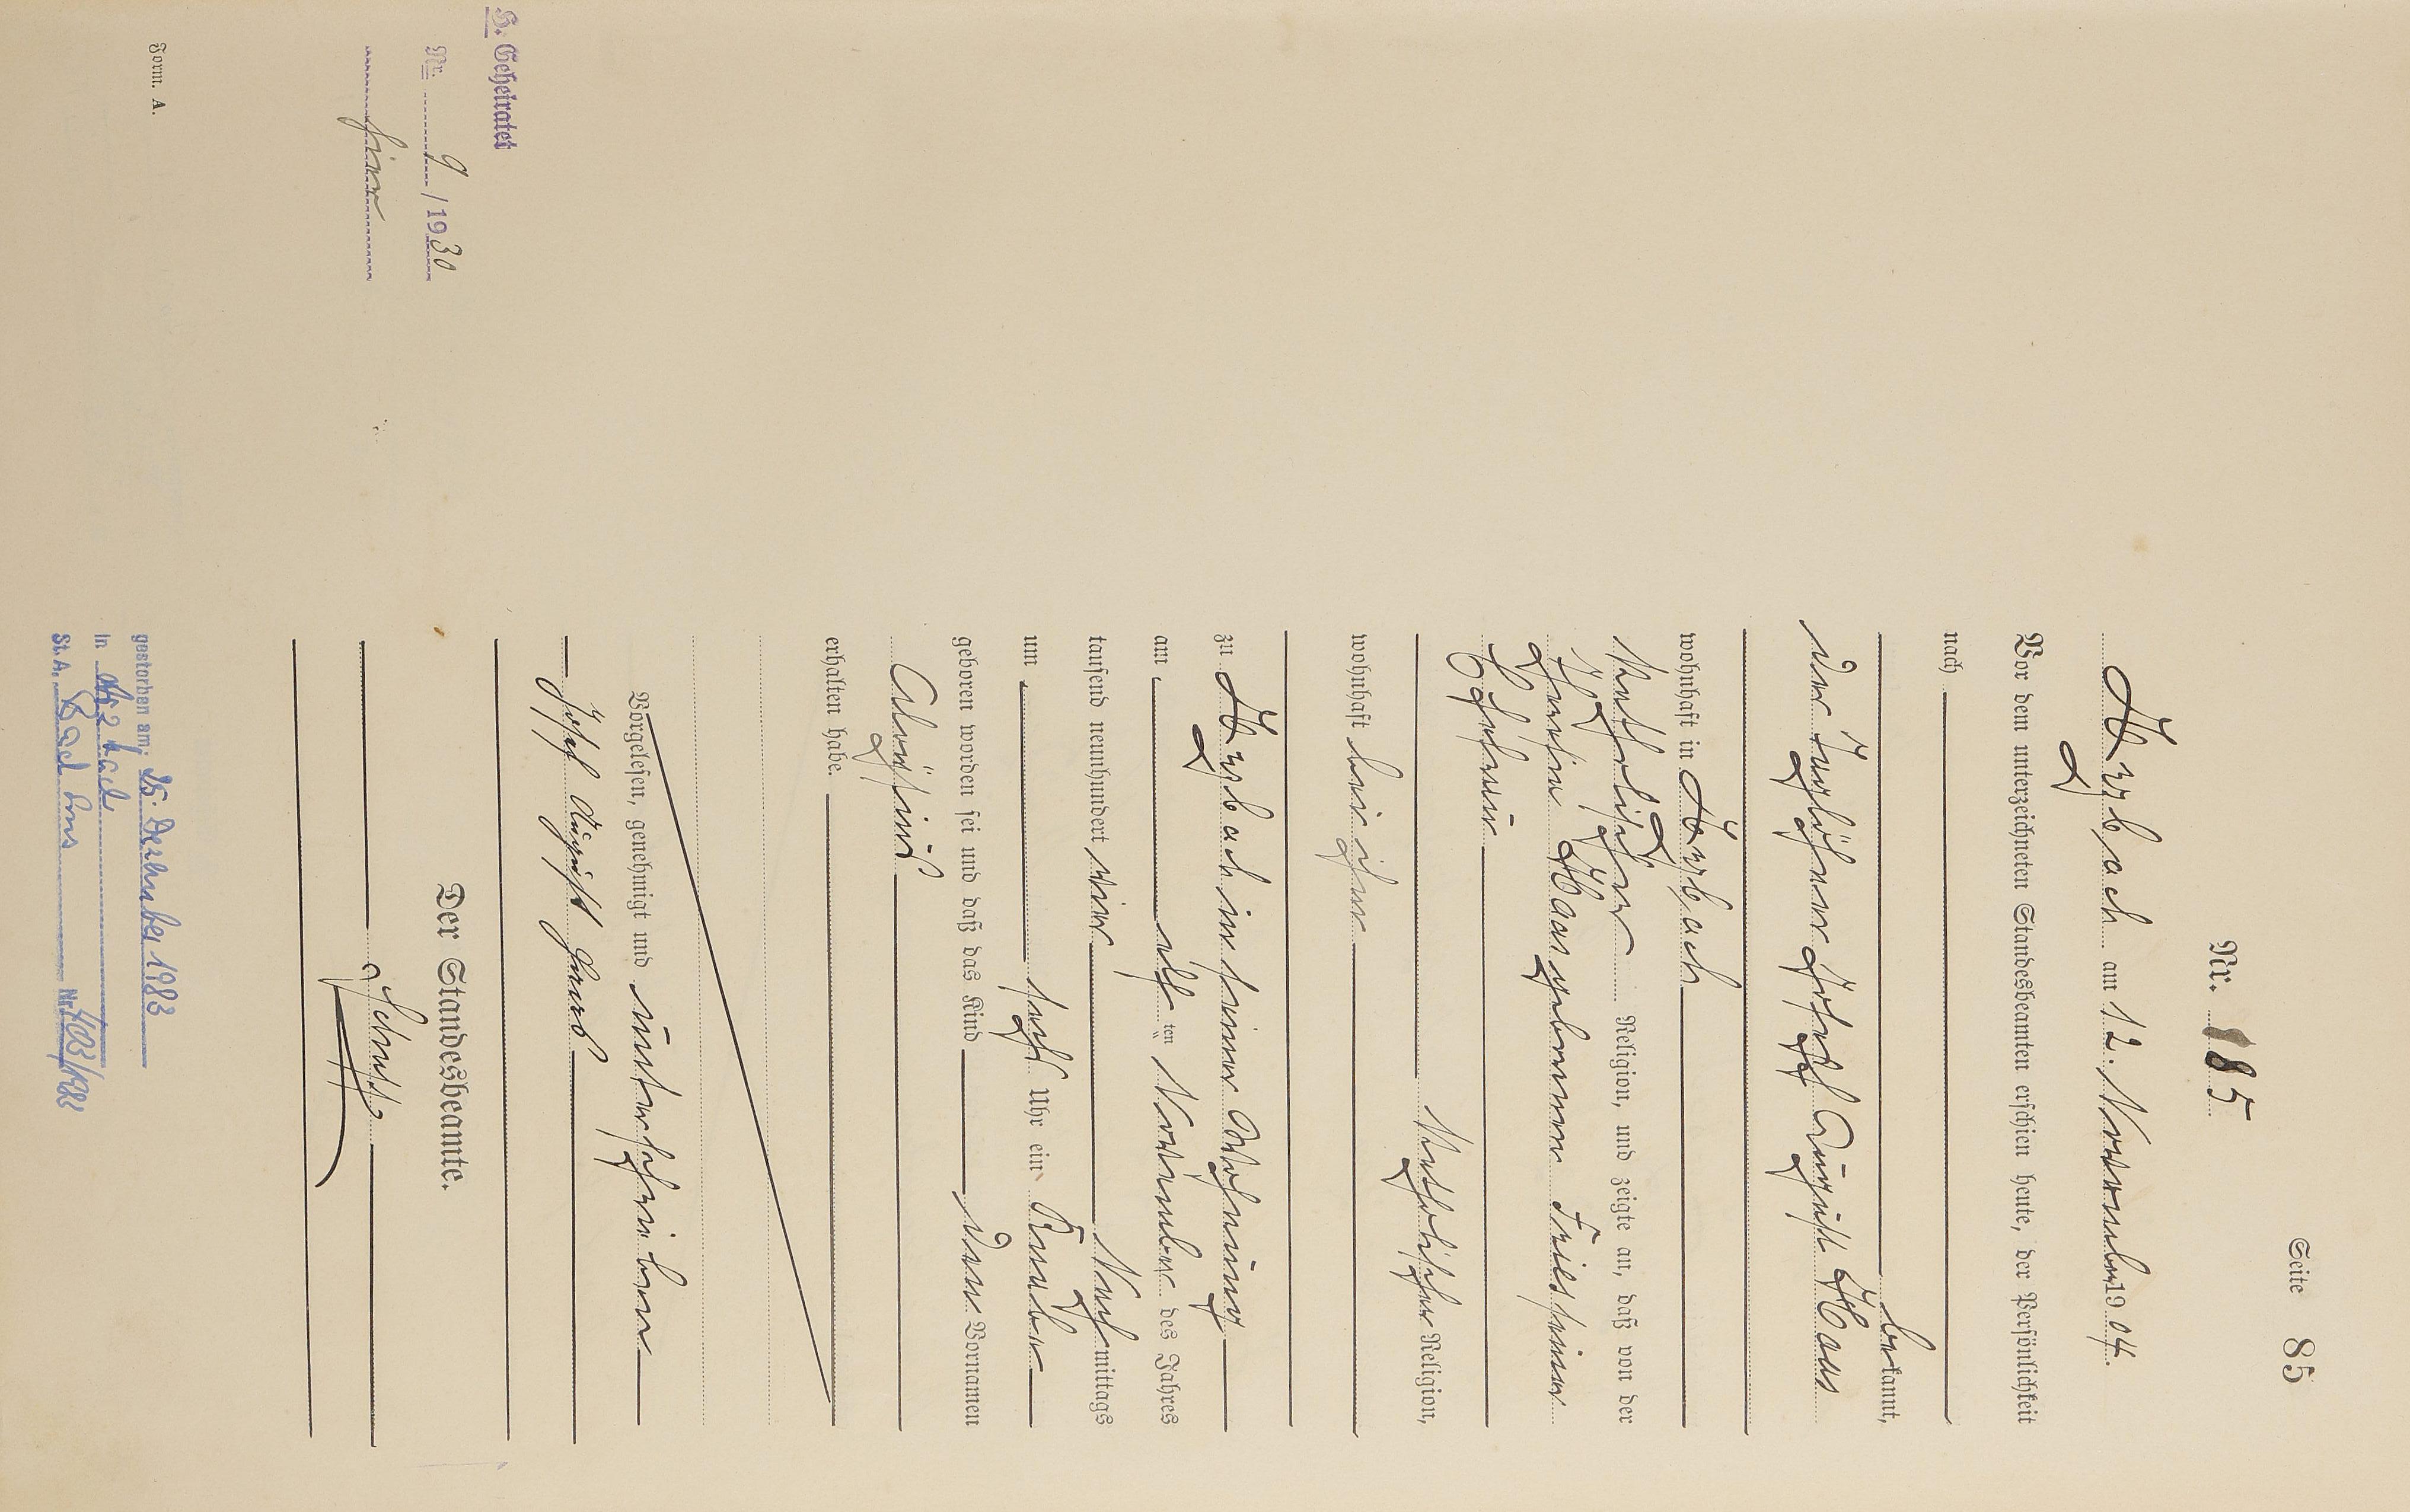 Seite 85
Nr. 185
Arzbach am 12. November 1904.
Vor dem unterzeichneten Standesbeamten erschien heute, der Persönlichkeit
nach
bekannt,
der Taglöhner Joseph August Haas
wohnhaft in Arzbach
katholischer Religion, und zeigte an, daß von der
Haas gebornen Fries seiner
Ehefrau
katholischer Religion,
wohnhaft bei ihm
zu Arzbach in seiner Wohnung
am elf ten November des Jahres
tausend neunhundert vier Nachmittags
um sechs Uhr ein Knabe
geboren worden sei und daß das Kind den Vornamen
Aloysius
erhalten habe.
Vorgelesen, genehmigt und unterschrieben
Josef August Haas
Der Standesbeamte.
H. Geheiratet
Nr. 9 / 1930
hier
Form. A.
gestorben am: Dezember 1983
in Arzbach
St. A. Bad Ems Nr. 403/1983